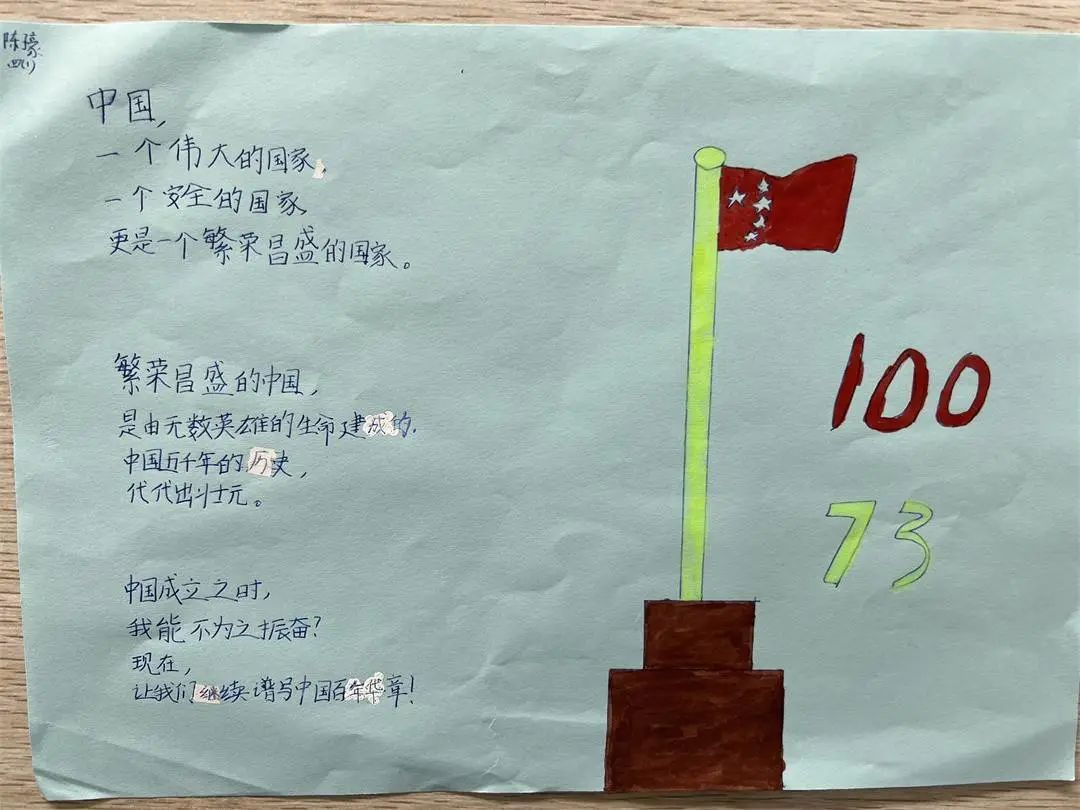 陈豪
四(1)
中国,
一个伟大的国家,
一个安全的国家,
更是一个繁荣昌盛的国家。
繁荣昌盛的中国,
是由无数英雄的生命建成的.
中国五千年的历史,
代代出壮元。
中国成立之时,
我能不为之振奋?
现在,
让我们继续谱写中国百年华章!
100
73